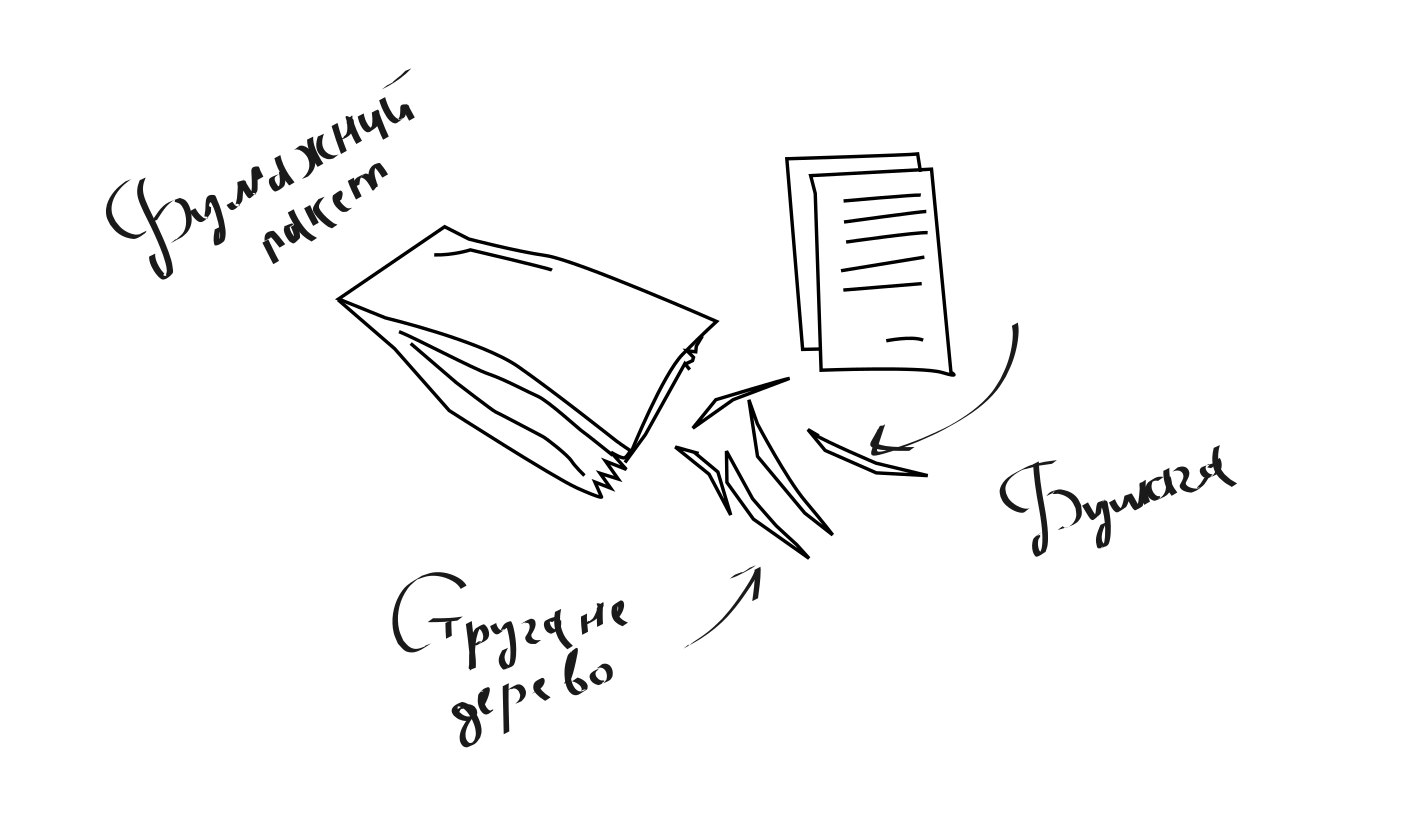 Бумажний
пакет
Бумага
Стругане
дерево